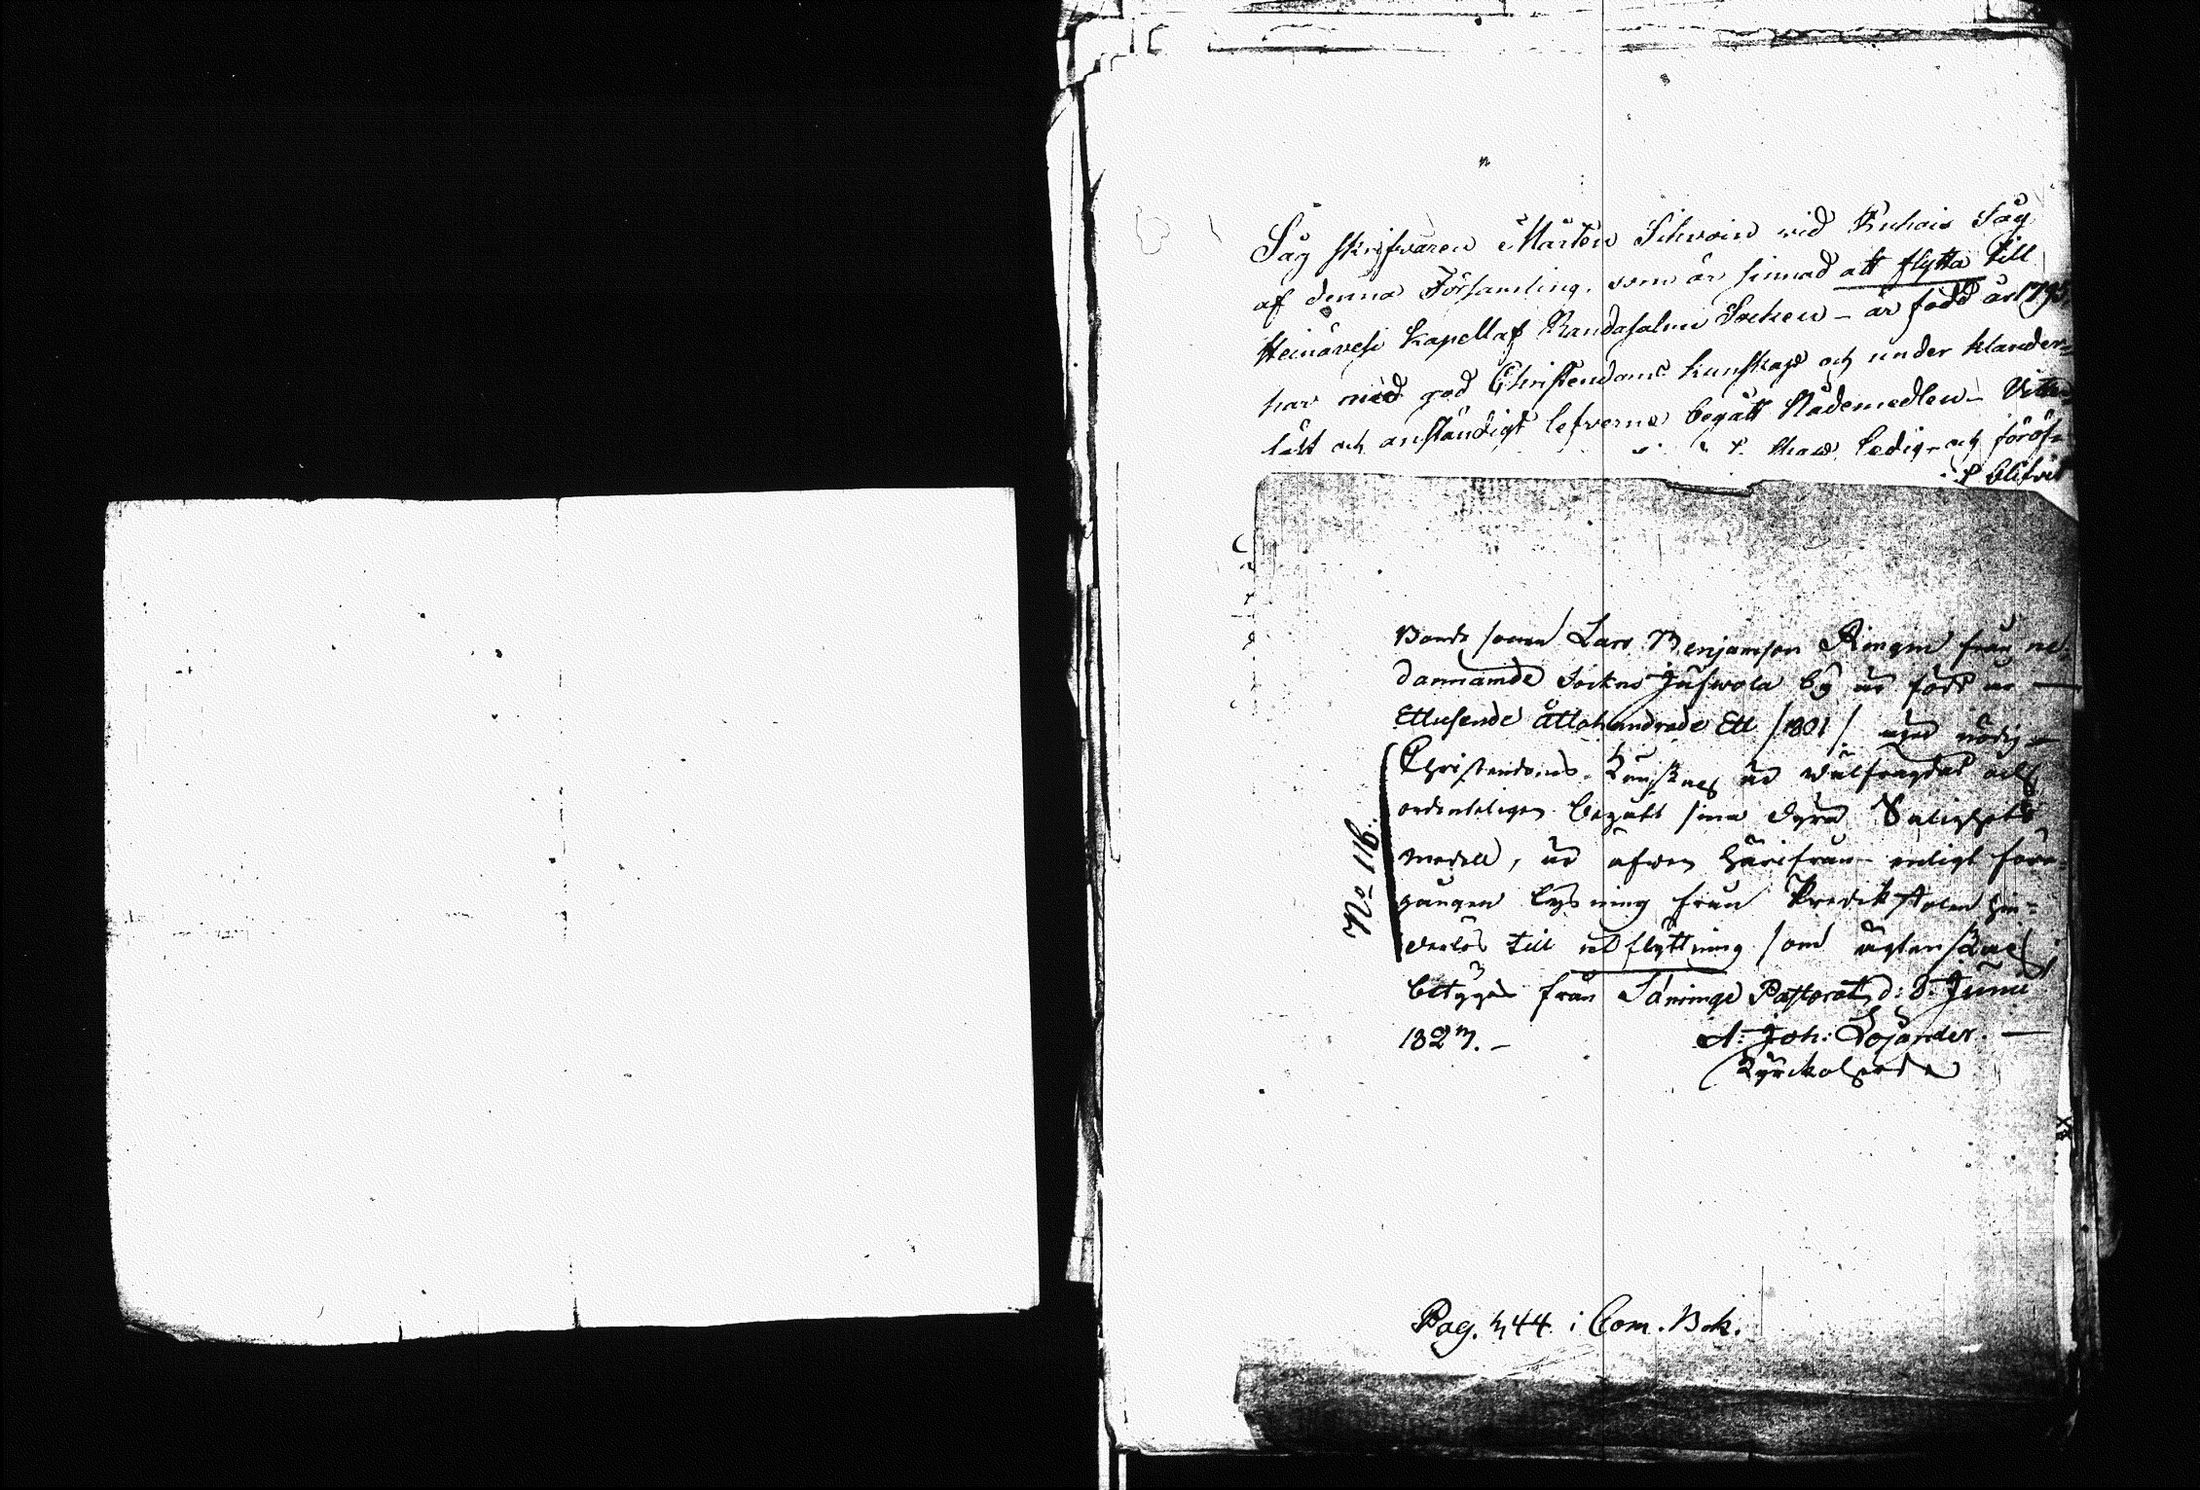 Såg skrifvaren Mårten Sihvoin wid Kuhais Såg
af denna Församling, som är sinnad att flytta till
Heinävesi Kapell af Randasalmi Socken – är född år 1795,
har med god Christendoms kunskap och under klander-
löst och anständigt lefverne begått Nådemedlen –
ledig – och
blifvit
Bonde sonen Lars Benjamson Ringin från ne-
dannämde Sockns Jufwola by är född år –
Ettusende åttahundrade Ett /1801/ äger nödig
Christendoms Kunskap är wälfrägdad och
ordenteligen begått sina dyra Salighets
medell, är äfwen härifrån enligt före-
gången lysning från Predikstolen hin-
derlös till utflyttning som ägtenskap;
betygas från Säminge Pastorat, d: 8: Junii
1827. – A: Joh: Cojander. –
Kyrckoherde
No 116.
Pag. 444 i Com. Bok.